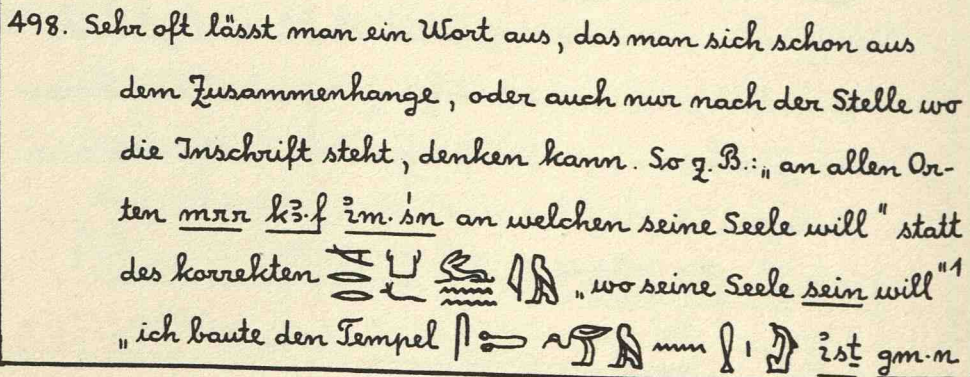 498. Sehr oft lässt man ein Wort aus, das man sich schon aus
dem Zusammenhange, oder auch nur nach der Stelle wo
die Inschrift steht, denken kann. So z. B.: „ an allen Or-
ten mrr kꜣ.f ım͗.śn an welchen seine Seele will " statt
des korrekten „ wo seine Seele sein will "1
„ ich baute den Tempel ıs͗ṯ gm.n